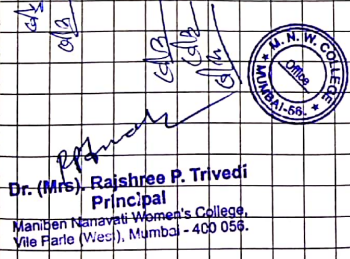 M. N. W. COLLEGE
Office
★ MUMBAI-56. ★
Dr. (Mrs). Rajshree P. Trivedi
Principal
Maniben Nanavati Women's College,
Vile Parle (West), Mumbai - 400 056.